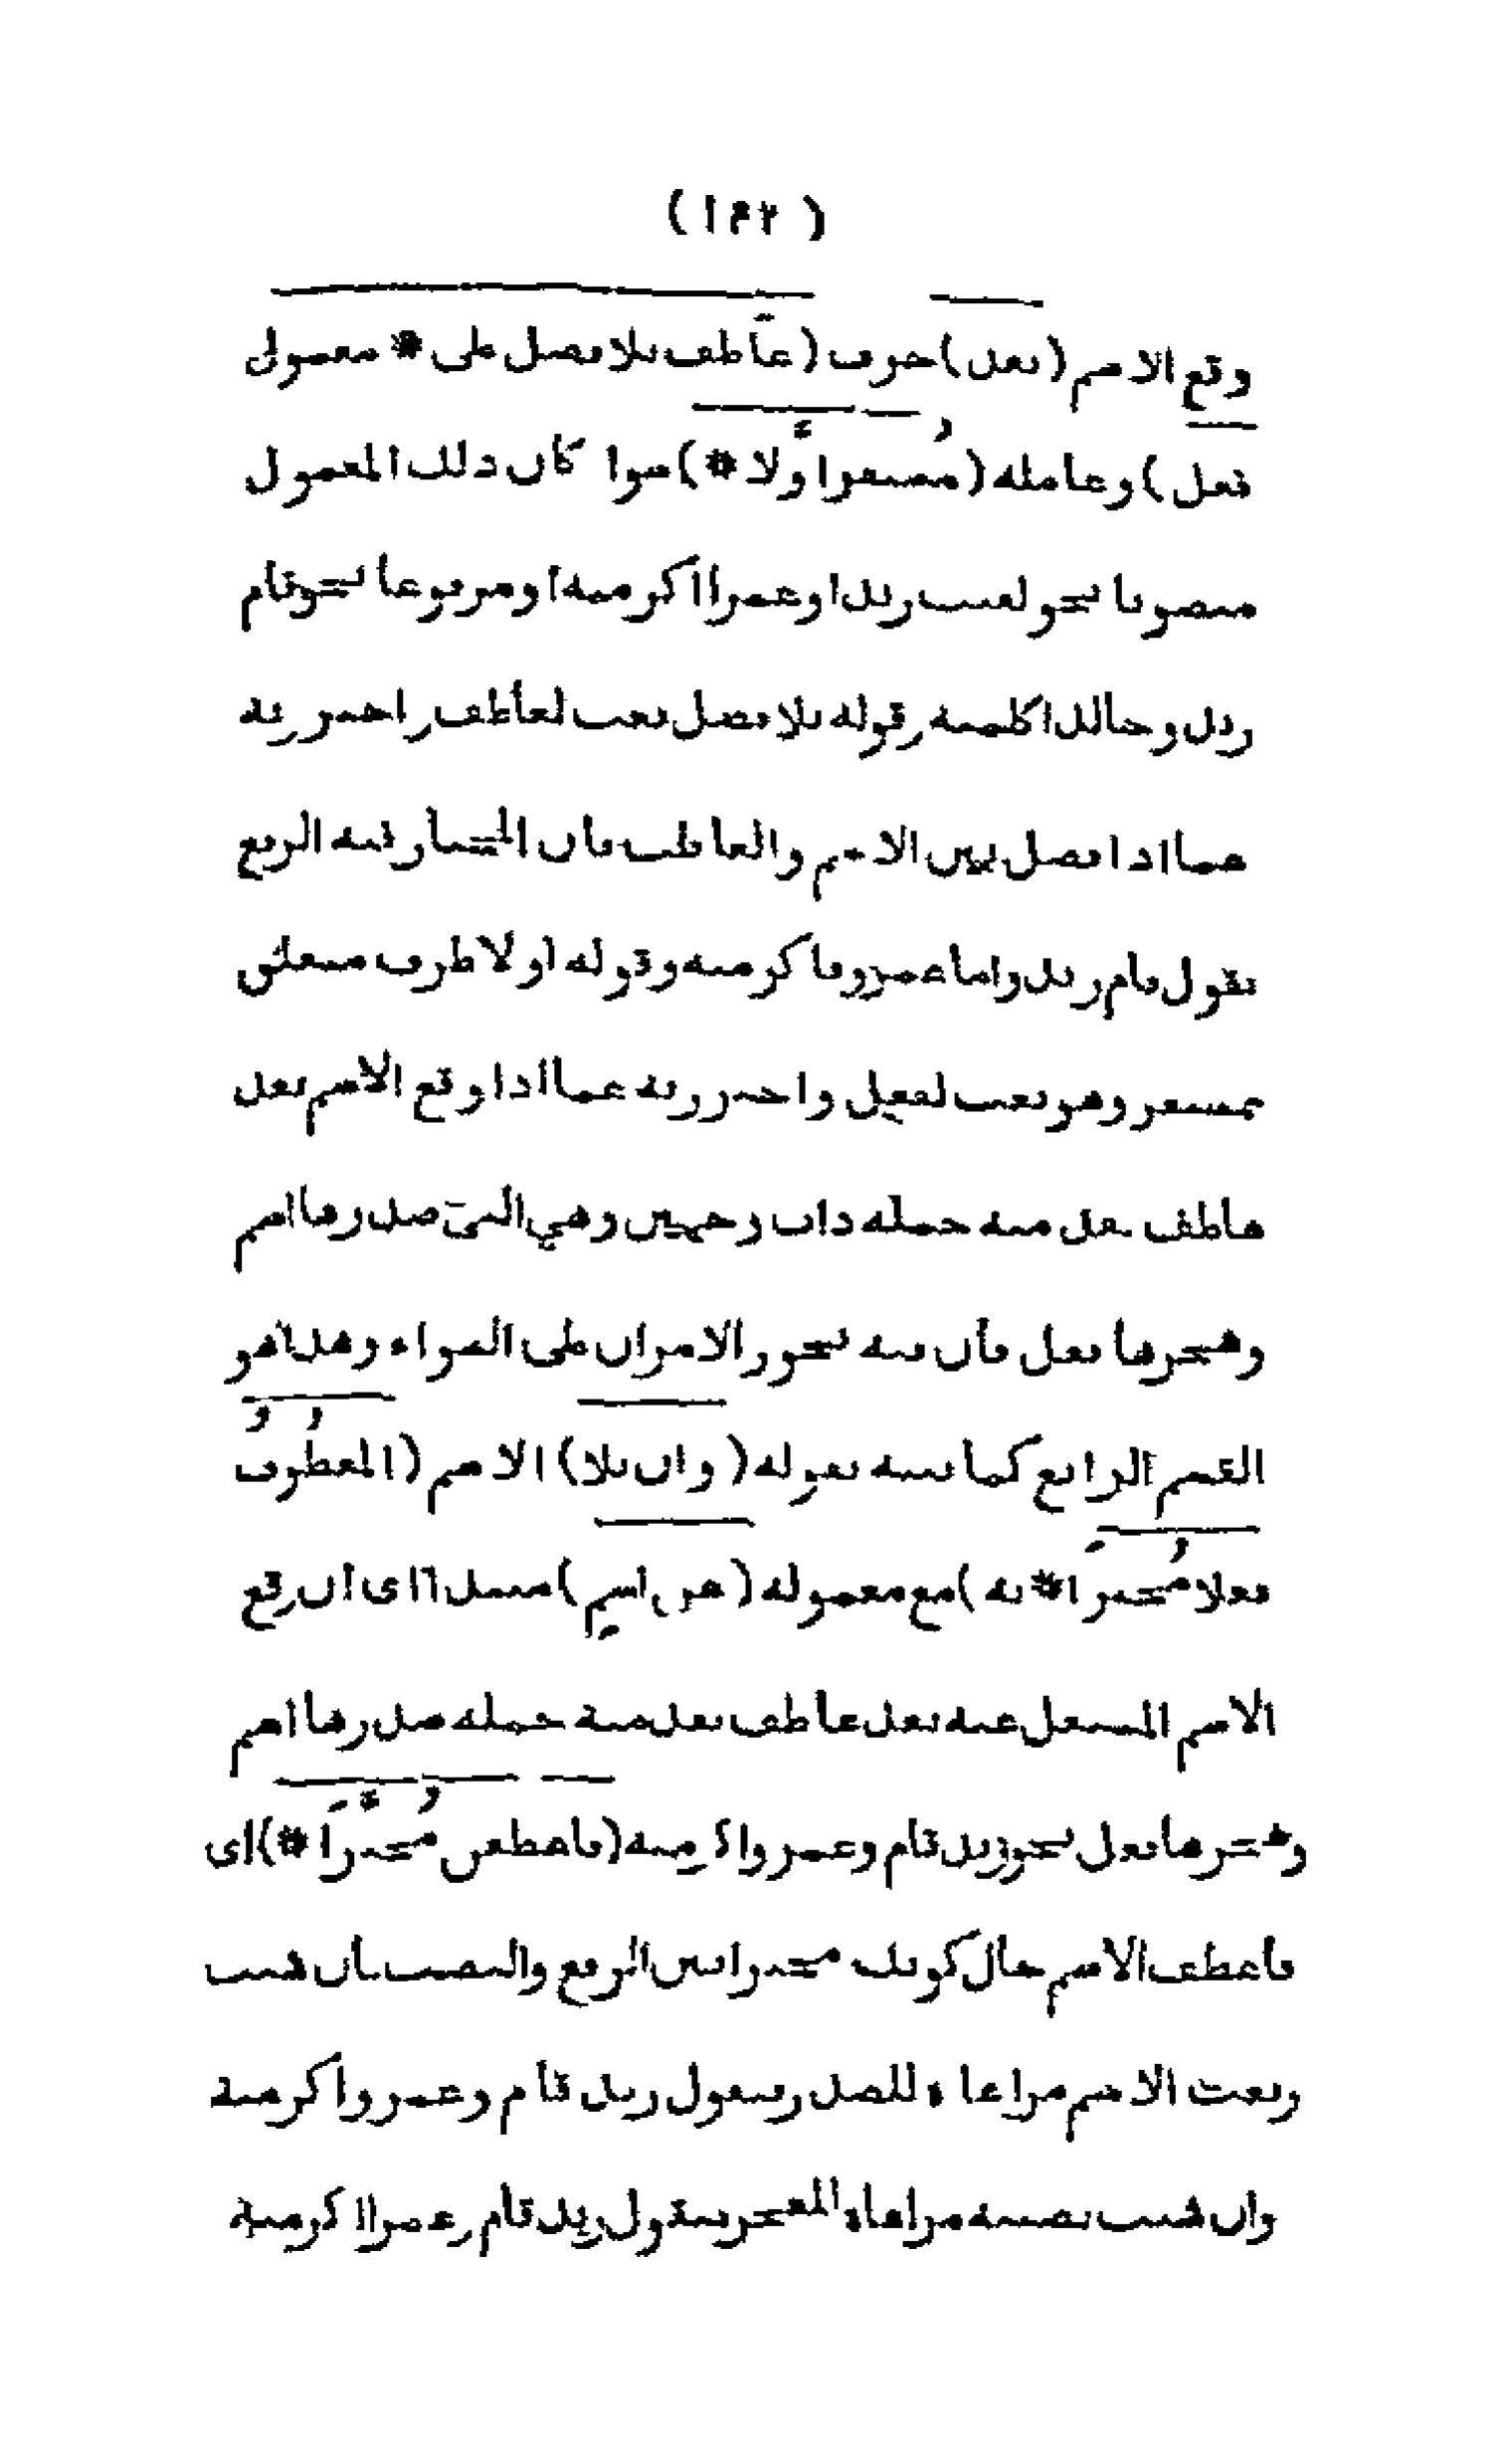 ( ١٤٢ )
وقع الاسم (بعد) حرف (عاطف بلا فصل على * معمول
فعل) وعامله (مستقر اولا *) سوا كان ذلك المعمول
منصوبا نحو لقيت زيدا وعمرا اكرمته او مرفوعا نحو قام
زيد وخالدا كلمته وقوله بلا فصل نعت لعاطف واحترز به
عما اذا فصل بين الاسم والعاطف فان المختار فيه الرفع
تقول قام زيد واما عمرو فاكرمته وقوله اولا ظرف متعلق
بمستقر وهو نعت لفعل واحترز به عما اذا وقع الاسم بعد
عاطف بعد منه جملة ذات وجهين وهي التى صدرها اسم
وعجزها فعل فان فيه يجوز الامران على السواء وهذا هو
القسم الرابع كما نبه بقوله (وان تلا) الاسم (المعطوف
فعلا مخبرا * به) مع معموله (عن اسم) مبتدا اى ان وقع
الاسم المشتغل عنه بعد عاطف بعد جملة صدرها اسم
وعجزها فعل نحو زيد قام وعمرو اكرمته (فاعطفن مخيرا *) اى
فاعطف الاسم حال كونك مخيرا بين الرفع والنصب فان شئت
رفعت الاسم مراعاة للصدر فتقول زيد قام وعمرو اكرمته
وان شئت نصبته مراعاة للعجز فتقول زيد قام وعمرا اكرمته